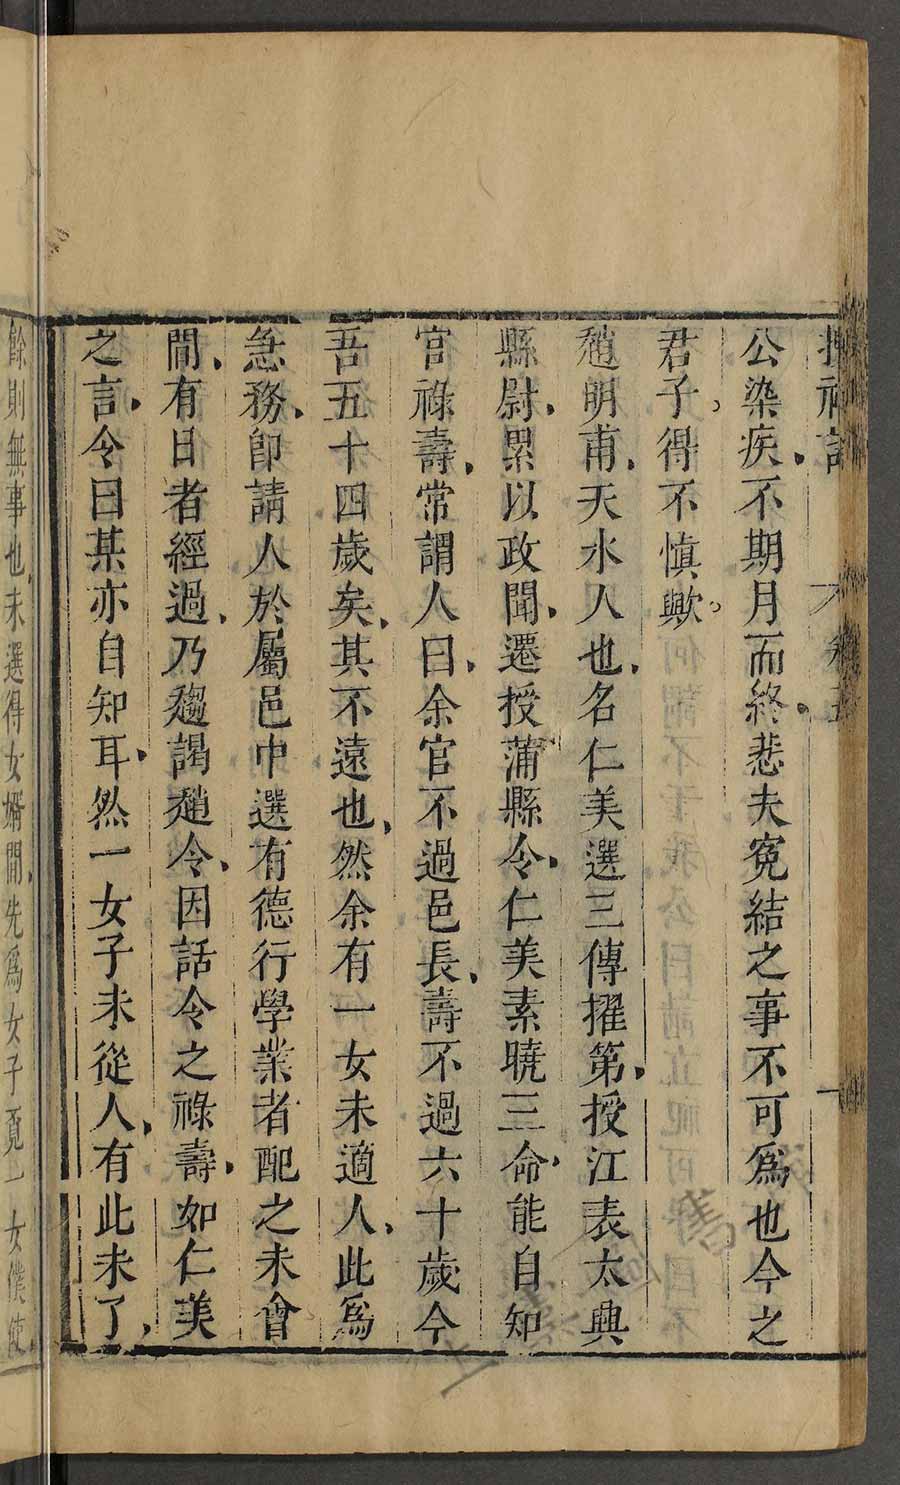 搜神記 卷五 一
公染疾不期月而終悲夫寃結之事不可爲也今之
君子得不慎歟
趙明甫天水人也名仁美選三傳擢第授江表太興
縣尉累以政聞遷授蒲縣令仁美素曉三命能自知
官祿壽常謂人曰余官不過邑長壽不過六十歲今
吾五十四歲矣其不遠也然余有一女未適人此爲
急務卽請人於屬邑中選有德行學業者配之未會
閒有日者經過乃趨謁趙令因話令之祿壽如仁美
之言令曰某亦自知耳然一女子未從人有此未了
餘則無事也未選得女婿閒先爲女子覓一女僕使